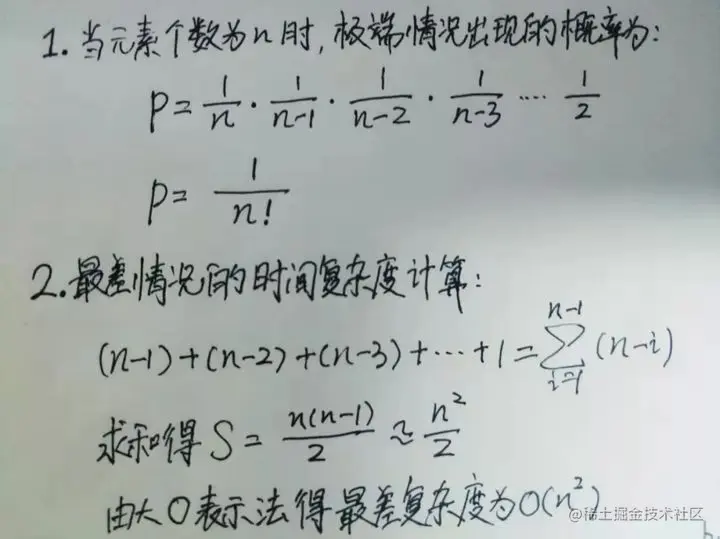 1. 当元素个数为n时,极端情况出现的概率为:
P = 1/n · 1/(n-1) · 1/(n-2) · 1/(n-3) ···· 1/2
P = 1/n!
2. 最差情况的时间复杂度计算:
(n-1)+(n-2)+(n-3)+···+1 = ∑_{i=1}^{n-1} (n-i)
求和得 S = n(n-1)/2 ≈ n²/2
由大O表示法得最差复杂度为O(n²)
@稀土掘金技术社区